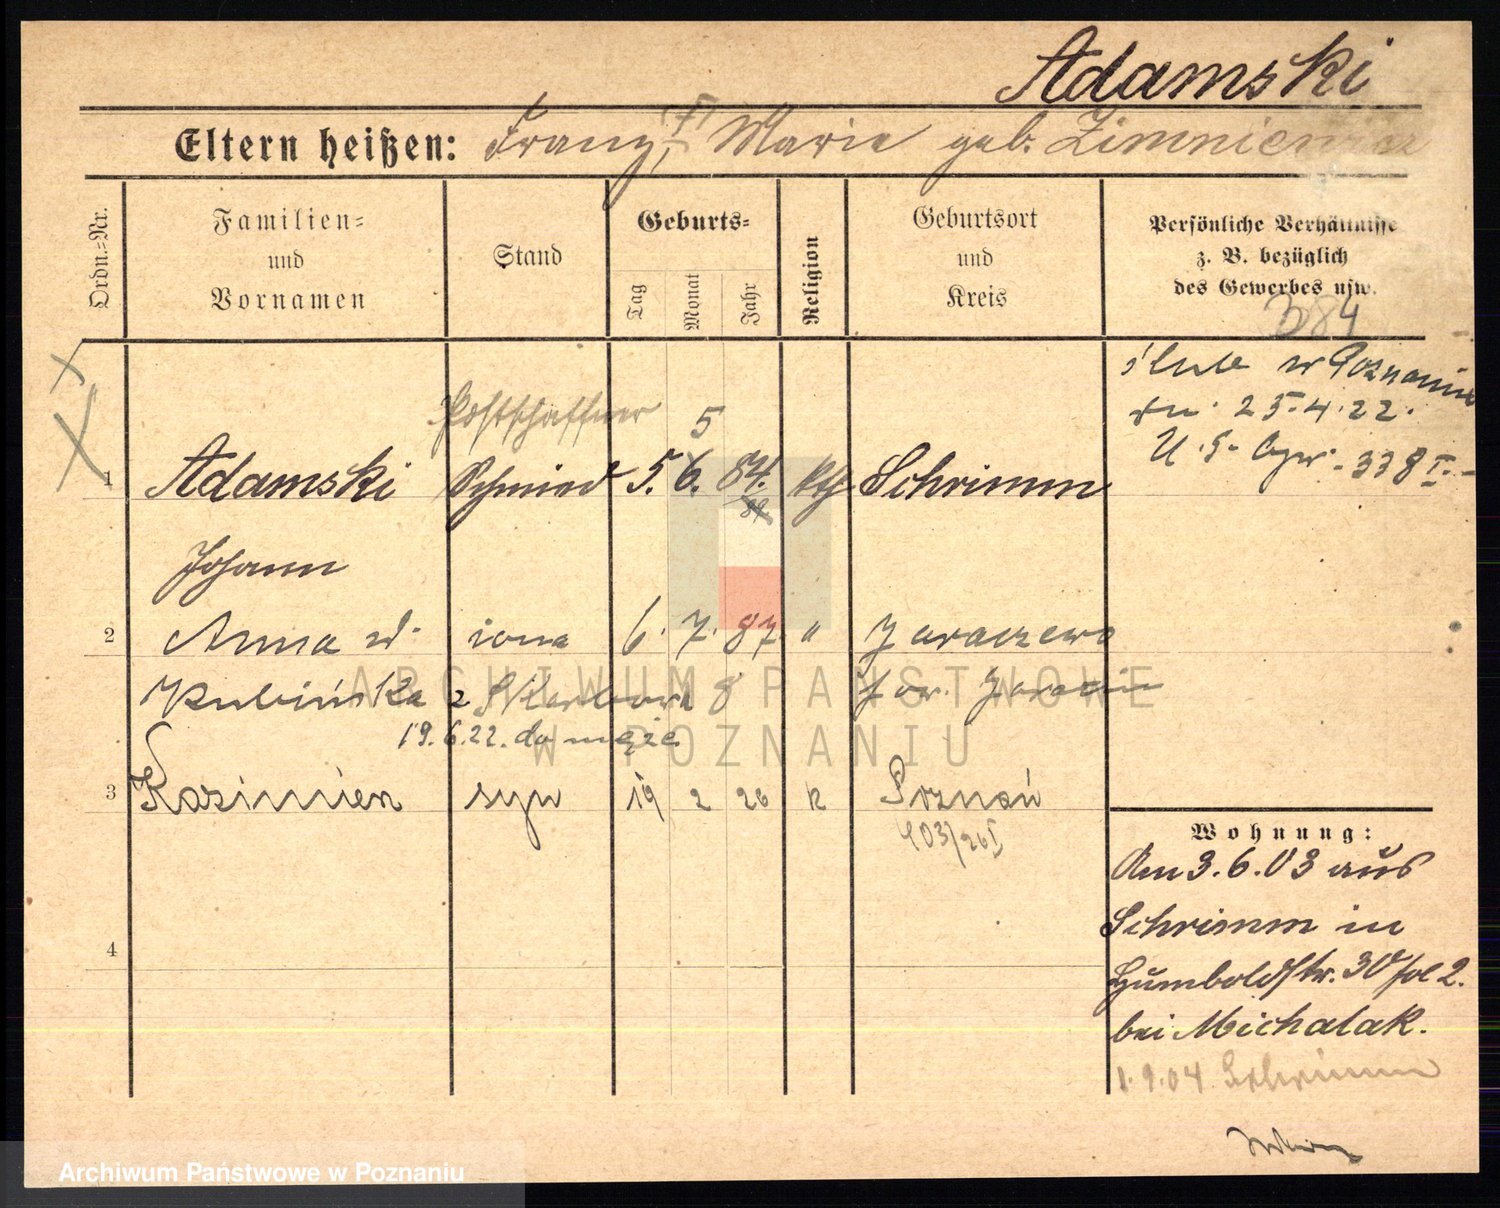 Adamski
Eltern heißen: Franz, Marie geb. Zimniewicz
Ordn.=Nr.
Familien=
und
Vornamen
Stand
Geburts=
Tag
Monat
Jahr
Religion
Geburtsort
und
Kreis
Persönliche Verhältnisse
z. B. bezüglich
des Gewerbes usw.
384
ślub w Poznaniu
dn. 25.4.22.
U. S. 338 I.
Postschaffner 5
1 Adamski Schmied 5. 6. 84. kth Schrimm
Johann
2 Anna ż. 6. 7. 87. " Jaraczewo
Kubińska z 8 pow. Jarocin
19.6.22. do męża
3 Kazimierz syn 19 2 26 k Poznań
403/26 I
4
Wohnung:
Am 3.6.03 aus
Schrimm in
Humboldstr. 30 hol 2.
bei Michalak.
1.9.04 Schrimm
ARCHIWUM PAŃSTWOWE
W POZNANIU
Archiwum Państwowe w Poznaniu